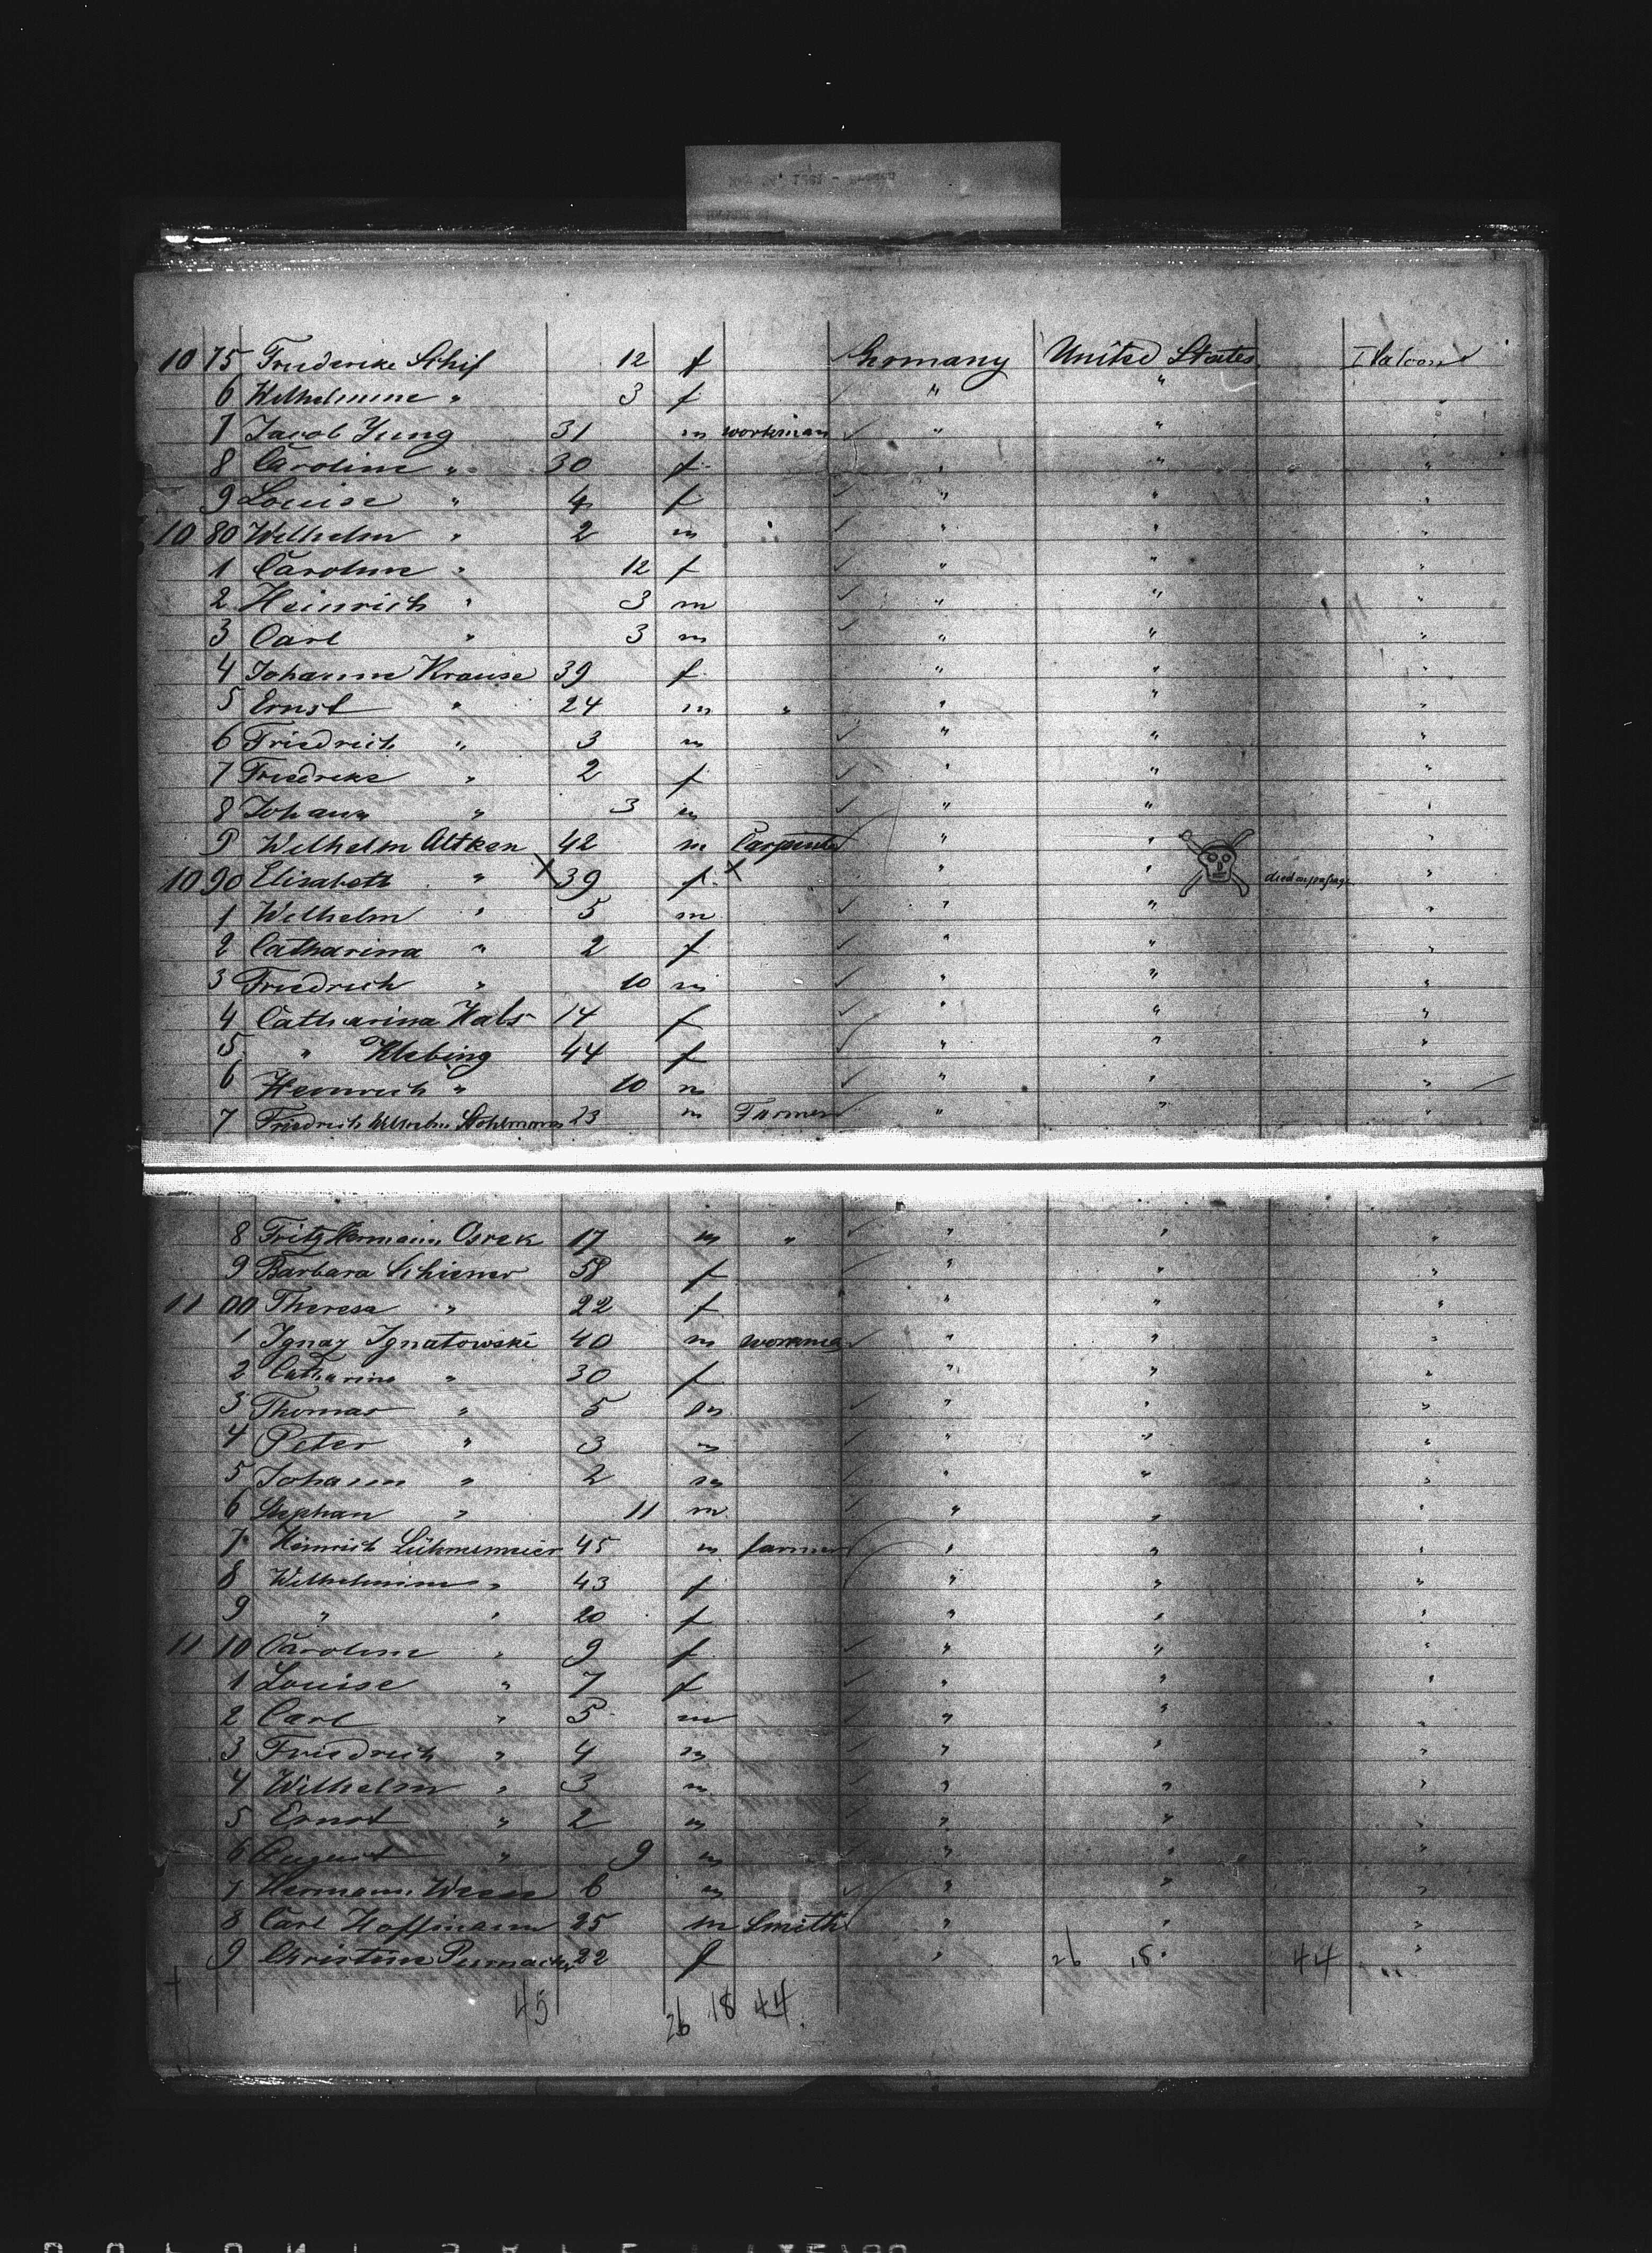 10 75 Friederike Schif 12 f Germany United States
6 Wilhelmine " 3 f " " "
7 Jacob Jung 31 m workman " " "
8 Caroline " 30 f " " "
9 Louise " 4 f " " "
10 80 Wilhelm " 2 m " " "
1 Caroline " 12 f " " "
2 Heinrich " 3 m " " "
3 Carl " 3 m " " "
4 Johanne Krause 39 f " " "
5 Ernst " 24 m " " " "
6 Friedrich " 3 m " " "
7 Friedreke " 2 f " " "
8 Johann " 3 m " " "
9 Wilhelm Altken 42 m Carpenter " " "
10 90 Elisabeth " X 39 f X " " died on passage "
1 Wilhelm " 5 m " " "
2 Catharina " 2 f " " "
3 Friedrich " 10 m " " "
4 Catharina Habs 14 f " " "
5 " Klebing 44 f " " "
6 Heinrich " 10 m " " "
7 Friedrich Wilhelm Stohlmann 23 m Farmer " " "
8 Fritz Hermann Osrek 17 m " " " "
9 Barbara Schiener 58 f " " "
11 00 Theresa " 22 f " " "
1 Ignaz Ignatowski 40 m workman " " "
2 Catharina " 30 f " " "
3 Thomas " 5 m " " "
4 Peter " 3 m " " "
5 Johann " 2 m " " "
6 Stephan " 11 m " " "
7 Heinrich Lührmeier 45 m farmer " " "
8 Wilhelmine " 43 f " " "
9 " " 20 f " " "
11 10 Caroline " 9 f " " "
1 Louise " 7 f " " "
2 Carl " 5 m " " "
3 Friedrich " 4 m " " "
4 Wilhelm " 3 m " " "
5 Ernst " 2 m " " "
6 August " 9 m " " "
7 Hermann Weese 6 m " " "
8 Carl Hoffmann 25 m Smith " " "
9 Christine 22 f " 26 18 44 "
45 26 18 44